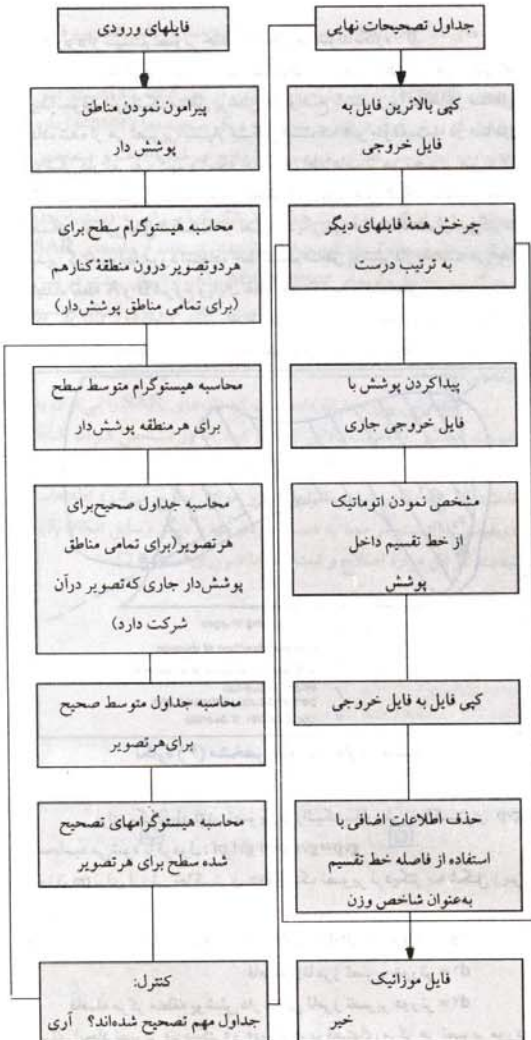 فایلهای ورودی
پیرامون نمودن مناطق
پوشش دار
محاسبه هیستوگرام سطح برای
هردوتصویر درون منطقهٔ کنارهم
(برای تمامی مناطق پوشش‌دار)
محاسبه هیستوگرام متوسط سطح
برای هرمنطقه پوشش‌دار
محاسبه جداول صحیح‌برای
هرتصویر(برای تمامی مناطق
پوشش‌دار جاری که‌تصویر درآن
شرکت دارد)
محاسبه جداول متوسط صحیح
برای‌هرتصویر
محاسبه هیستوگرامهای تصحیح
شده سطح برای هرتصویر
کنترل:
جداول مهم تصحیح شده‌اند؟ آری
خیر
جداول تصحیحات نهایی
کپی بالاترین فایل به
فایل خروجی
چرخش همهٔ فایلهای دیگر
به ترتیب درست
پیداکردن پوشش با
فایل خروجی جاری
مشخص نمودن اتوماتیک
از خط تقسیم داخل
پوشش
کپی فایل به فایل خروجی
حذف اطلاعات اضافی با
استفاده از فاصله خط تقسیم
به‌عنوان شاخص وزن
فایل موزائیک